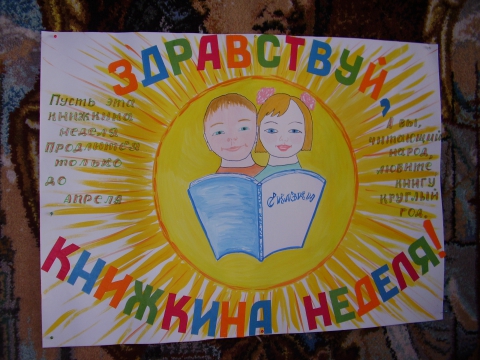 ЗДРАВСТВУЙ,
Пусть эта
книжкина
неделя
Продлится
только
до
апреля
А вы,
читающий
народ,
любите
книгу
круглый
год.
Библиотека
КНИЖКИНА НЕДЕЛЯ!